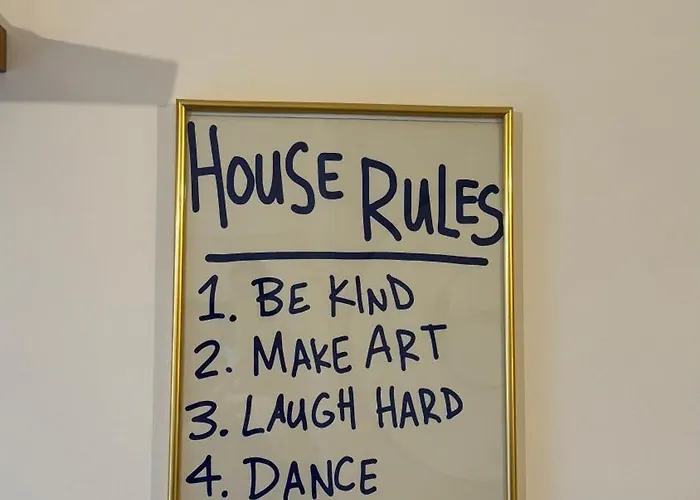 HOUSE RULES
1. BE KIND
2. MAKE ART
3. LAUGH HARD
4. DANCE